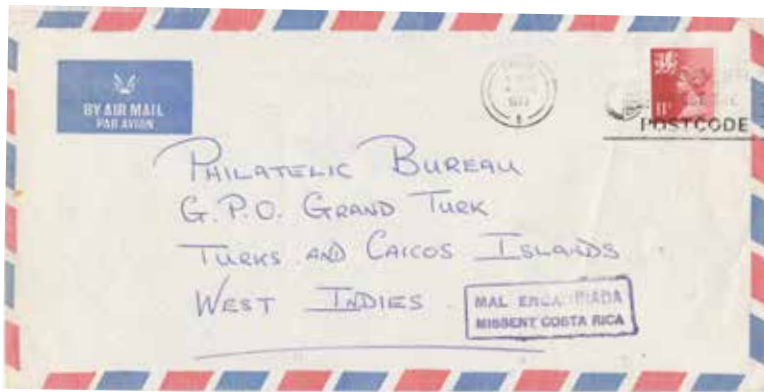 BY AIR MAIL
PAR AVION
1977
11P
POSTCODE
PHILATELIC BUREAU
G.P.O. GRAND TURK
TURKS AND CAICOS ISLANDS
WEST INDIES
MAL
MISSENT COSTA RICA